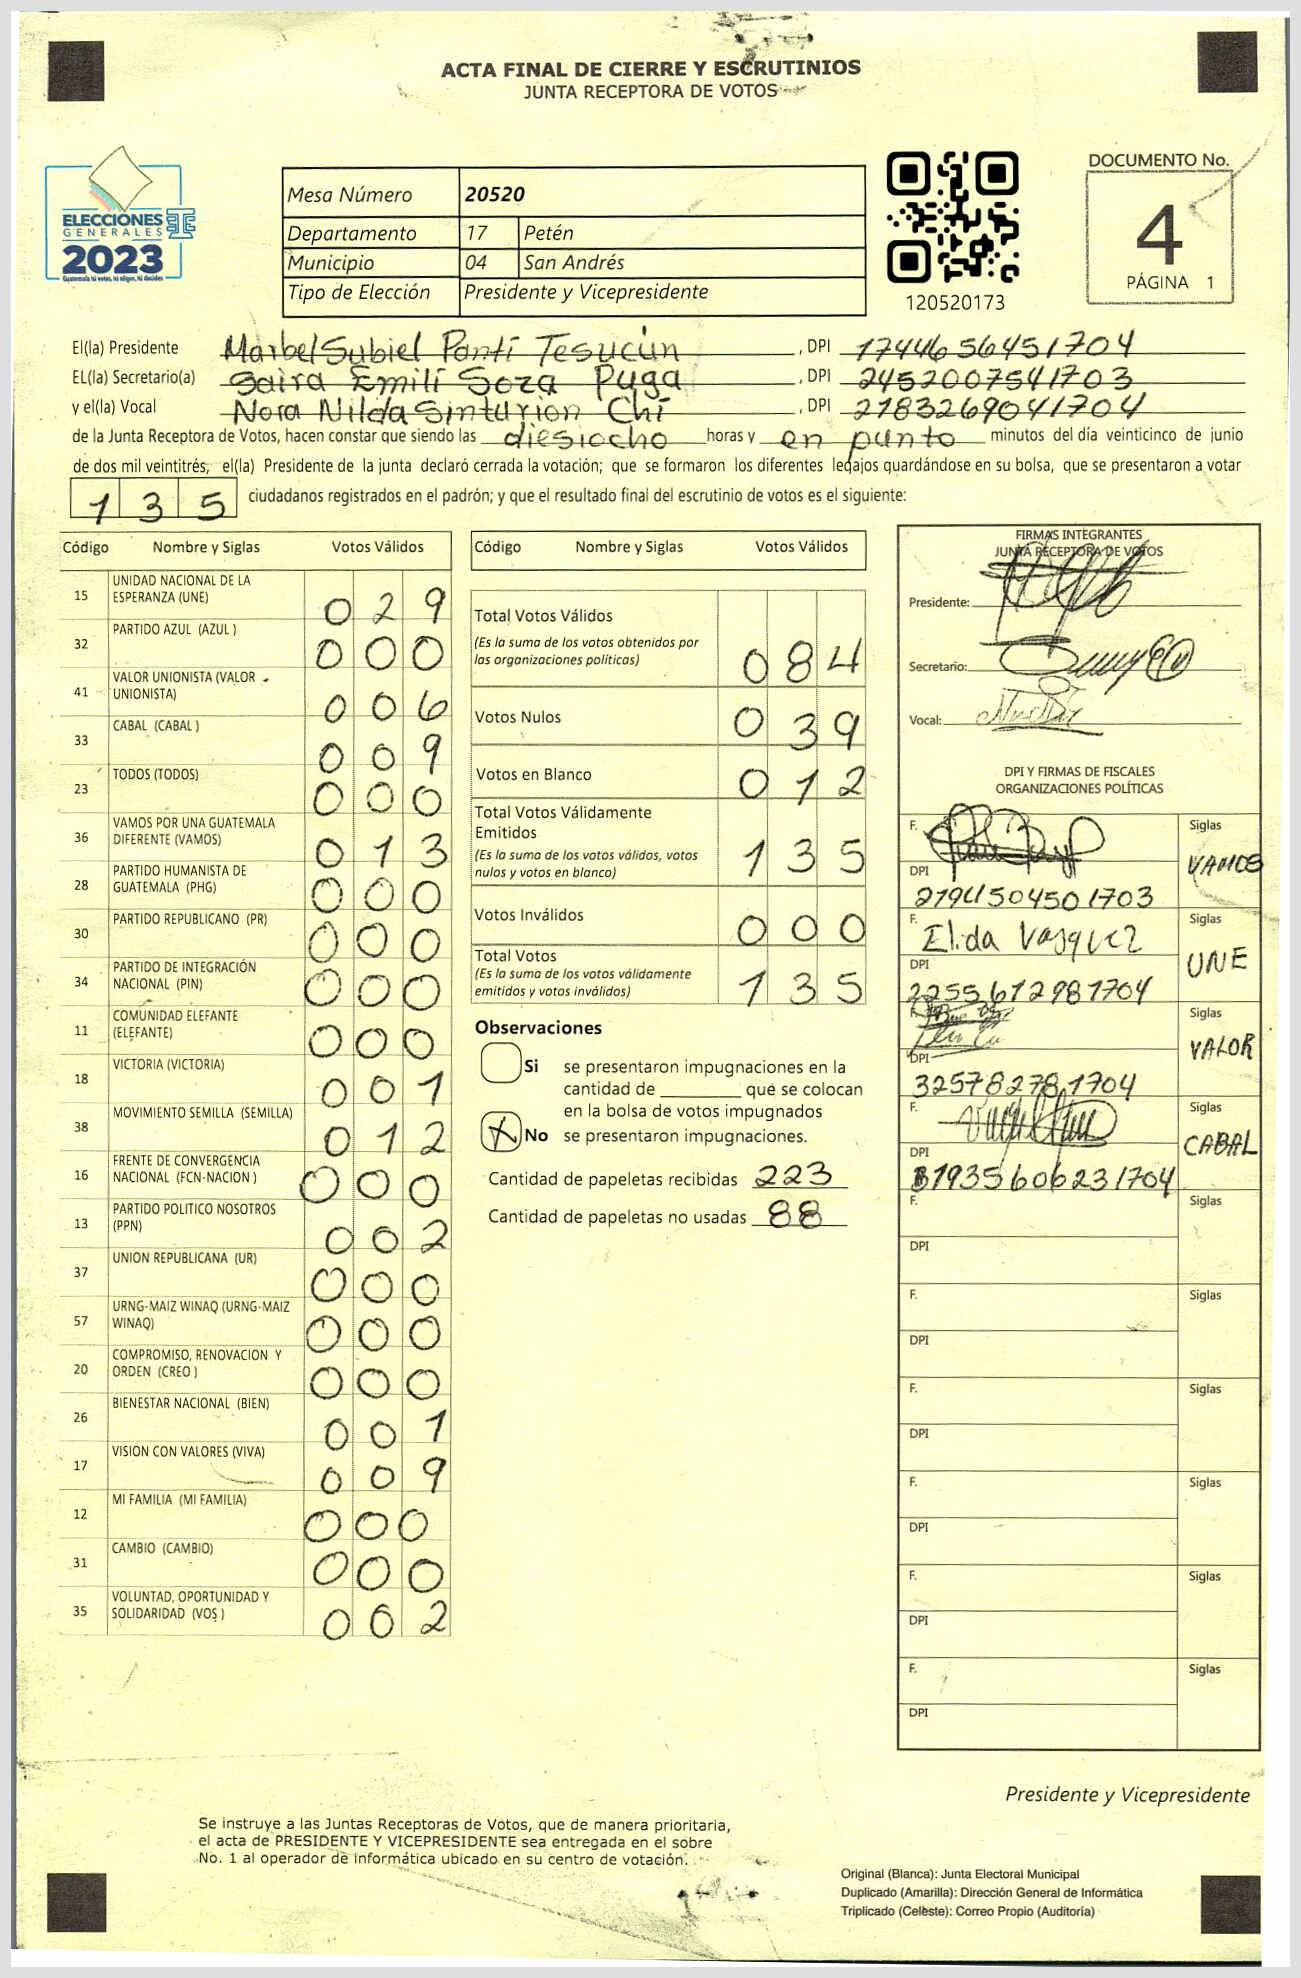 ACTA FINAL DE CIERRE Y ESCRUTINIOS
JUNTA RECEPTORA DE VOTOS
ELECCIONES
GENERALES
2023
Guatemala tú votas, tú eliges, tú decides
Mesa Número 20520
Departamento 17 Petén
Municipio 04 San Andrés
Tipo de Elección Presidente y Vicepresidente
120520173
DOCUMENTO No.
4
PÁGINA 1
El(la) Presidente Marbel Subiel Panti Tesucún, DPI 1744656451704
EL(la) Secretario(a) Saira Emili Soza Puga, DPI 2452007541703
y el(la) Vocal Nora Nilda Sinturion Chi, DPI 2783269041704
de la Junta Receptora de Votos, hacen constar que siendo las diesiocho horas y en punto minutos del día veinticinco de junio
de dos mil veintitrés, el(la) Presidente de la junta declaró cerrada la votación; que se formaron los diferentes legajos quardándose en su bolsa, que se presentaron a votar
135 ciudadanos registrados en el padrón; y que el resultado final del escrutinio de votos es el siguiente:
Código Nombre y Siglas Votos Válidos
15 UNIDAD NACIONAL DE LA ESPERANZA (UNE) 029
32 PARTIDO AZUL (AZUL ) 000
41 VALOR UNIONISTA (VALOR UNIONISTA) 006
33 CABAL (CABAL ) 009
23 TODOS (TODOS) 000
36 VAMOS POR UNA GUATEMALA DIFERENTE (VAMOS) 013
28 PARTIDO HUMANISTA DE GUATEMALA (PHG) 000
30 PARTIDO REPUBLICANO (PR) 000
34 PARTIDO DE INTEGRACIÓN NACIONAL (PIN) 000
11 COMUNIDAD ELEFANTE (ELEFANTE) 000
18 VICTORIA (VICTORIA) 001
38 MOVIMIENTO SEMILLA (SEMILLA) 012
16 FRENTE DE CONVERGENCIA NACIONAL (FCN-NACION ) 000
13 PARTIDO POLITICO NOSOTROS (PPN) 002
37 UNION REPUBLICANA (UR) 000
57 URNG-MAIZ WINAQ (URNG-MAIZ WINAQ) 000
20 COMPROMISO, RENOVACION Y ORDEN (CREO ) 000
26 BIENESTAR NACIONAL (BIEN) 001
17 VISION CON VALORES (VIVA) 009
12 MI FAMILIA (MI FAMILIA) 000
31 CAMBIO (CAMBIO) 000
35 VOLUNTAD, OPORTUNIDAD Y SOLIDARIDAD (VOS ) 002
Código Nombre y Siglas Votos Válidos
Total Votos Válidos
(Es la suma de los votos obtenidos por
las organizaciones políticas) 084
Votos Nulos 039
Votos en Blanco 012
Total Votos Válidamente
Emitidos
(Es la suma de los votos válidos, votos
nulos y votos en blanco) 135
Votos Inválidos 000
Total Votos
(Es la suma de los votos válidamente
emitidos y votos inválidos) 135
Observaciones
Si se presentaron impugnaciones en la
cantidad de ________ que se colocan
en la bolsa de votos impugnados
X No se presentaron impugnaciones.
Cantidad de papeletas recibidas 223
Cantidad de papeletas no usadas 88
FIRMAS INTEGRANTES
JUNTA RECEPTORA DE VOTOS
Presidente:
Secretario:
Vocal:
DPI Y FIRMAS DE FISCALES
ORGANIZACIONES POLÍTICAS
F. Siglas VAMOS
DPI 21941504501703
F. Elida Vasquez Siglas UNE
DPI 2255612981704
F. Siglas VALOR
DPI 325782781704
F. Siglas CABAL
DPI 1935606231704
F. Siglas
DPI
F. Siglas
DPI
F. Siglas
DPI
F. Siglas
DPI
F. Siglas
DPI
F. Siglas
DPI
Presidente y Vicepresidente
Se instruye a las Juntas Receptoras de Votos, que de manera prioritaria,
el acta de PRESIDENTE Y VICEPRESIDENTE sea entregada en el sobre
No. 1 al operador de informática ubicado en su centro de votación.
Original (Blanca): Junta Electoral Municipal
Duplicado (Amarilla): Dirección General de Informática
Triplicado (Celeste): Correo Propio (Auditoría)